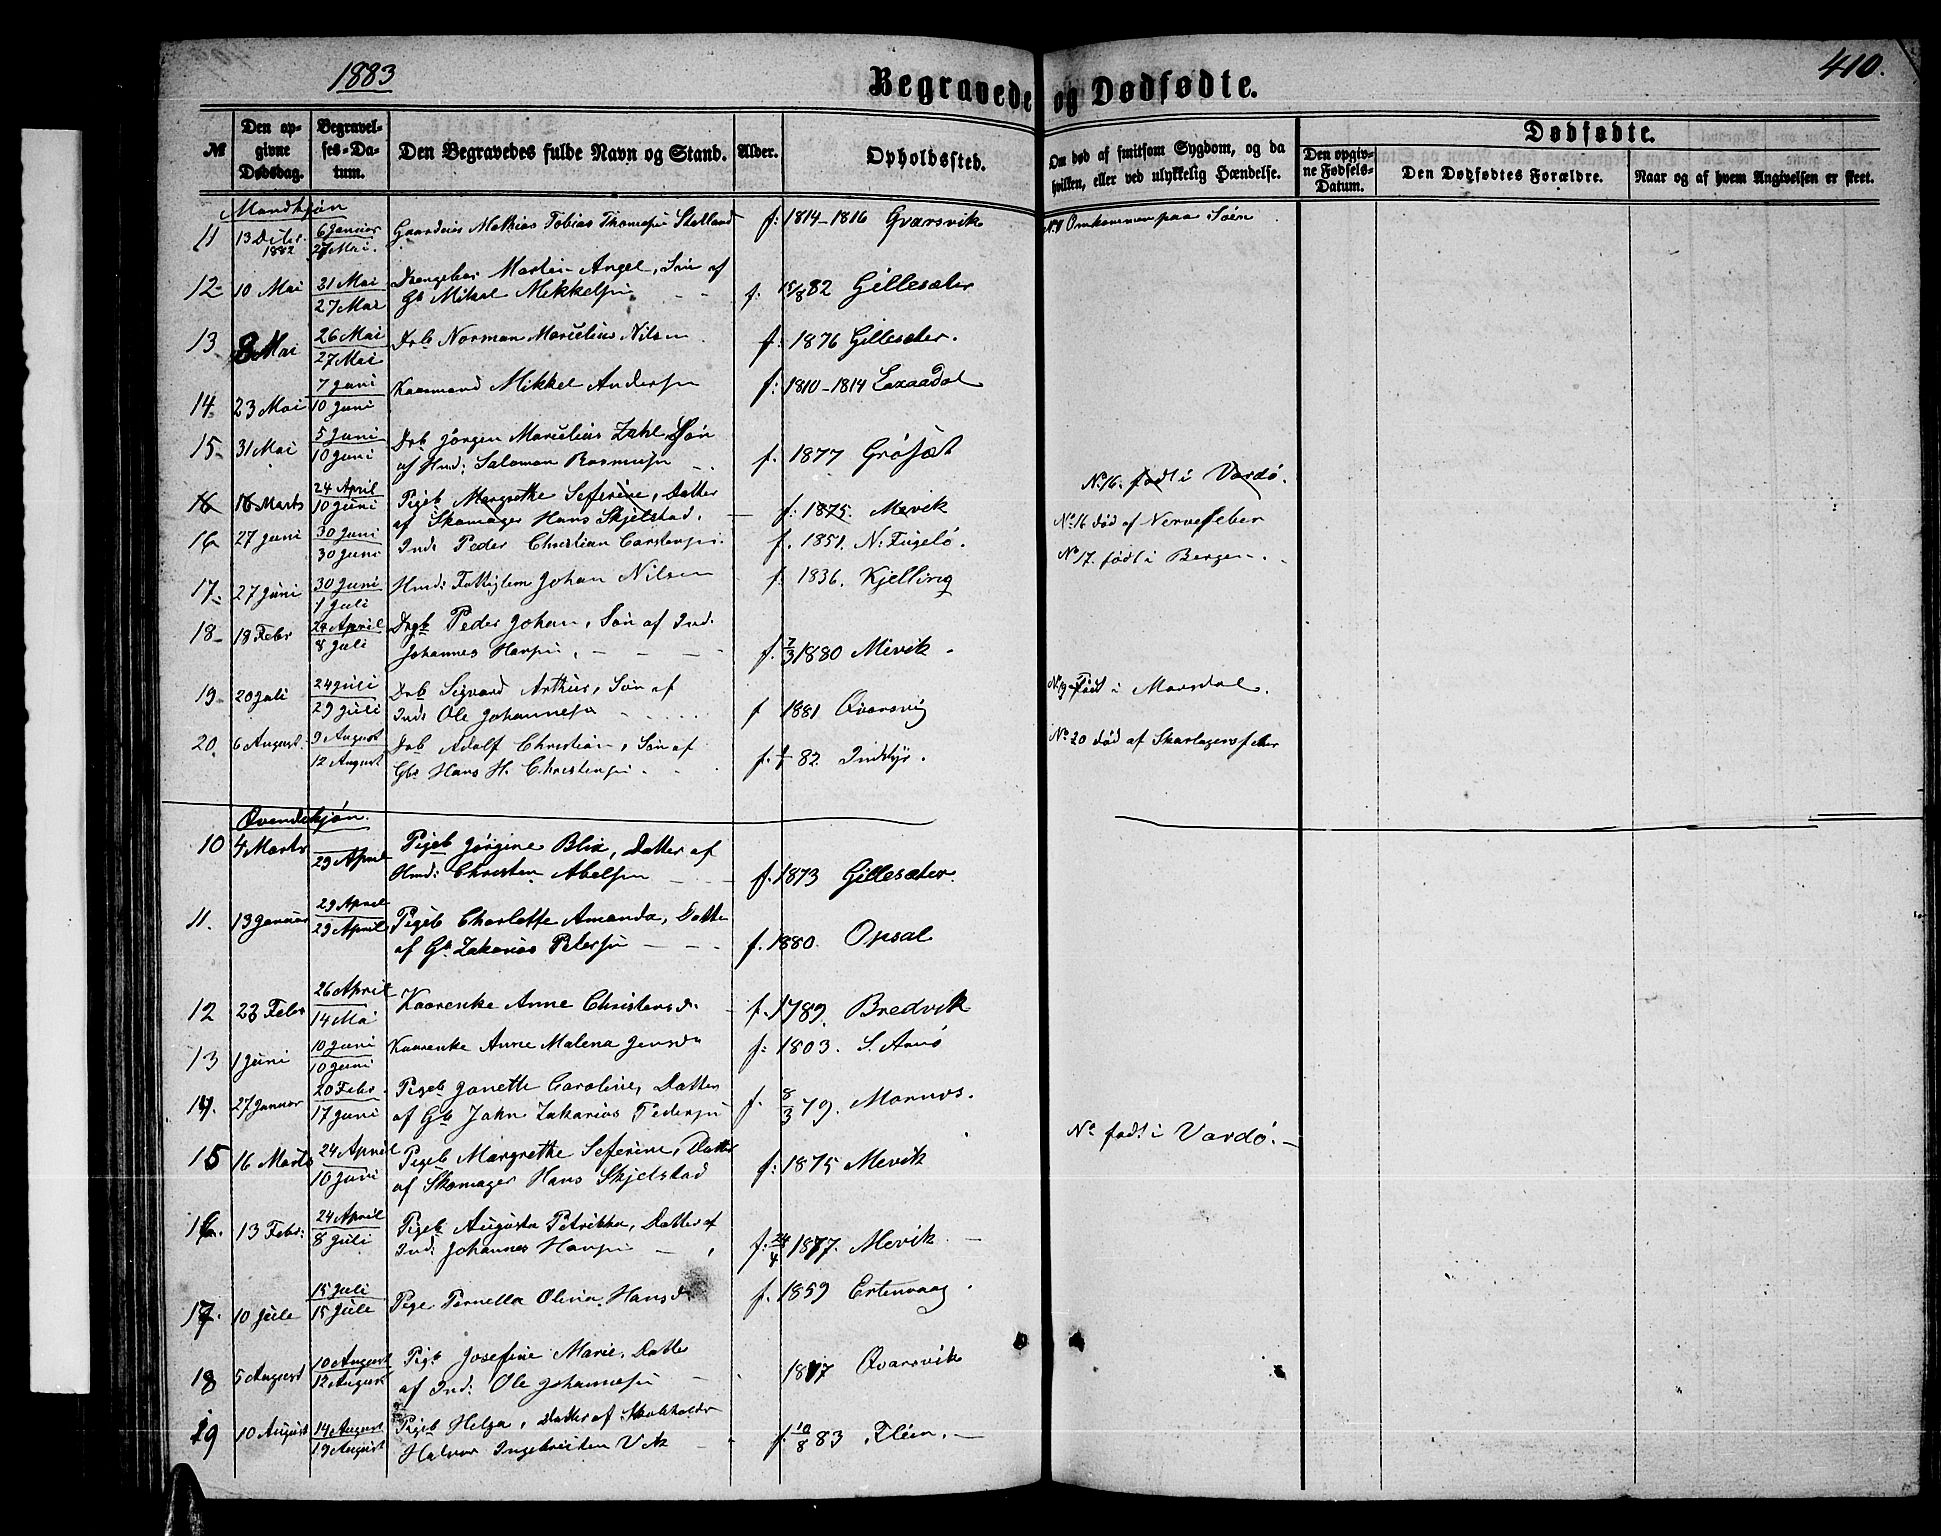 1883
Begravede og Dødfødte.
410.
№
Den opgivne Dødsdag.
Begravelses-Datum.
Den Begravedes fulde Navn og Stand.
Alder.
Opholdssted.
Om død af smitsom Sygdom, og da hvilken, eller ved ulykkelig Hændelse.
Dødfødte.
Den opgivne Fødsels-Datum.
Den Dødfødtes Forældre.
Naar og af hvem Angivelsen er skeet.
Mandkjøn
11 13 Decbr. 1882 6 Januar 27 Mai. Mathias Tobias Thomassen f: 1814-1816 Gvarsvik Omkommen paa Søen
12 10 Mai 21 Mai Martin Angel, Søn af
27 Mai Gb Mikal Mikkelsen f: 15/8 82 Gillesæter
13 8 Mai 26 Mai Drb Norman Marielius Nilsen f: 1876 Gillesæter.
27 Mai
14 23 Mai 7 Juni Kaarmand Mikkel Andersen f: 1810-1814
10 Juni
15 31 Mai 5 Juni Drb Jørgen Marielius Zahl, Søn
10 Juni af Hmd: Salomon Rasmussen f. 1877
16 16 Marts 24 April Pigeb Margrethe Seferine, Datter
10 Juni af Skomager Hans Skjelstad. f: 1875. Mevik No 16. født i Vardø.
16 27 Juni 30 Juni Ind: Peder Christian Carstensen f. 1851. N. Fugelø. No 16 død af Nervefeber
30 Juni
17. 27 Juni 30 Juni Hmd: Fattiglem Johan Nilsen f. 1836. Kjelling No 17. født i Bergen.
1 Juli
18 18 Febr 24 April Drgb Peder Johan, Søn af Ind:
8 Juli Johannes Hansen, f. 7/3 1880 Mevik.
19. 20 Juli 24 Juli Drb Sigvard Arthur, Søn af
29 Juli Ind: Ole Johannesen f 1881 Qvarsvig No 19 Født i
20. 6 August. 9 August Drb Adolf Christian, Søn af
12 August Gb: Hans H. Christensen. f. 82 Indstyr. No 20 død af Skarlagensfeber
Qvindekjøn.
10 4 Marts 29 April Pigeb Jørgine Blix, Datter af
Hmd: Christen Abelsen f. 1873 Gillesæter.
11. 13 Januar 29 April Pigeb Charlotte Amanda, Datter
29 April af Gb Zakarias Petersen f. 1880. Opsal
12 23 Febr 26 April Kaarenke Anne Christensd. f. 1789. Bredvik
14 Mai
13 1 Juni 10 Juni Kaarenke Anne Malena Jensd. f: 1803. S. Arnø
10 Juni
14. 27 Januar 20 Febr. Pigeb Janette Caroline, Datter
17 Juni af Gb John Zakarias Pedersen f. 8/3 79. Mornes.
15 16 Marts 24 April Pigeb Margrethe Seferine, Datter
10 Juni af Skomager Hans Skjelstad f: 1875 Mevik No født i Vardø.
16. 13 Febr: 24 April Pigeb Augusta Petrikka, Datter af
8 Juli Ind: Johannes Hansen f: 24/4 1877. Mevik
17. 10 Jule 15 Juli Pige Pernella Olina Hansd. f. 1859 Ertenvaag.
15 Jule
18 5 August 10 August Pigb Josefine Marie, Datter
12 August af Ind: Ole Johannesen 1877 Qvarsvik
19 10 August 14 August Pigeb Helga, Datter af Skoleholder
19 August Halvor Ingebrigtsen Vik f. 10/8 83 Elien.